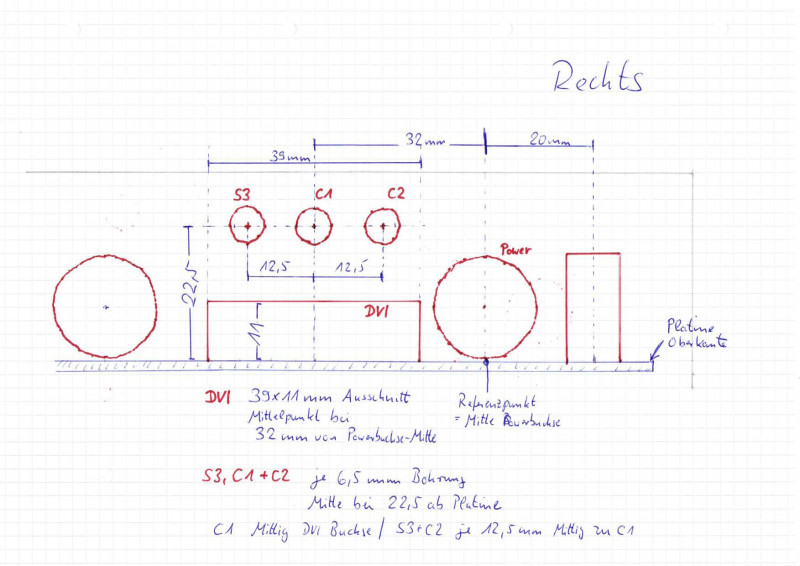 Rechts
32 mm
20 mm
39 mm
S3 C1 C2
Power
12,5 12,5
22,5
DVI
11
Platine
Oberkante
DVI 39x11 mm Ausschnitt
Mittelpunkt bei
32 mm von Powerbuchse-Mitte
Referenzpunkt
= Mitte Powerbuchse
S3, C1 + C2 je 6,5 mm Bohrung
Mitte bei 22,5 ab Platine
C1 Mittig DVI Buchse / S3+C2 je 12,5 mm Mittig zu C1